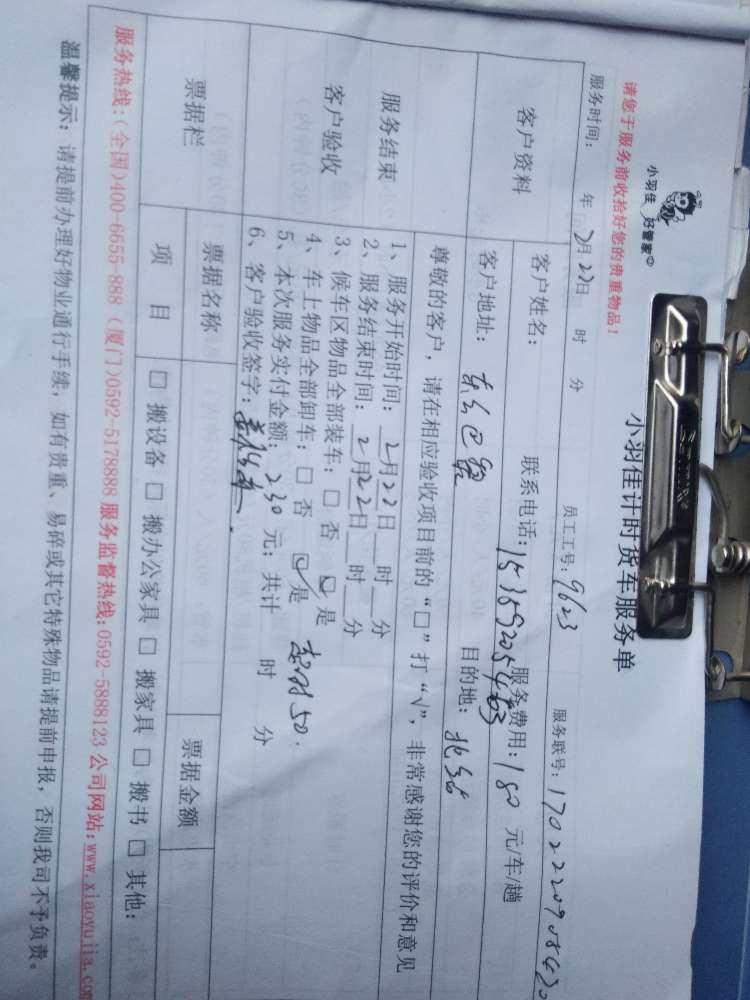 小羽佳 好管家
小羽佳计时货车服务单
请您于服务前收拾好您的贵重物品！
服务时间： 年 2月22日 时 分 员工工号：9623 服务联号：170222090842
客户资料
客户姓名： 联系电话：15359205463 服务费用：180 元/车/趟
客户地址： 目的地：
服务结束
客户验收
尊敬的客户，请在相应验收项目前的“□”打“√”，非常感谢您的评价和意见
1、服务开始时间：2月22日__时__分
2、服务结束时间：2月22日__时__分
3、候车区物品全部装车：□ 否 ☑ 是
4、车上物品全部卸车：□ 否 ☑ 是 超时50.
5、本次服务实付金额：230 元；共计 时 分
6、客户验收签字：
票据栏 票据名称 票据金额
项 目 □ 搬设备 □ 搬办公家具 □ 搬家具 □ 搬书 □ 其他：
服务热线：(全国)400-6655-888 (厦门)0592-5178888 服务监督热线：0592-5888123 公司网站：www.xiaoyujia.com
温馨提示：请提前办理好物业通行手续，如有贵重、易碎或其它特殊物品请提前申报，否则我司不予负责。